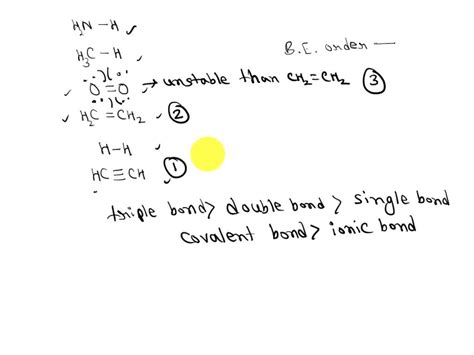 H₂N–H
H₃C–H
B.E. order —
O=O → unstable than CH₂=CH₂ ③
H₂C=CH₂ ②
H–H
HC≡CH ①
triple bond > double bond > single bond
covalent bond > ionic bond